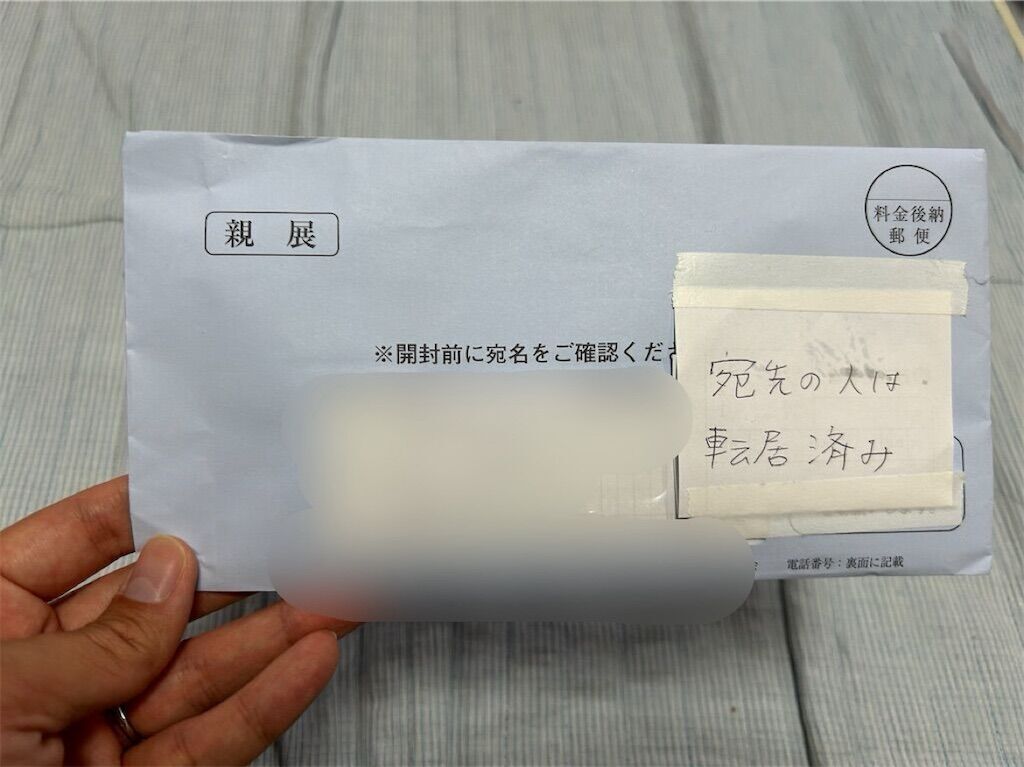 親展
料金後納
郵便
※開封前に宛名をご確認くださ
宛先の人は
転居済み
電話番号：裏面に記載